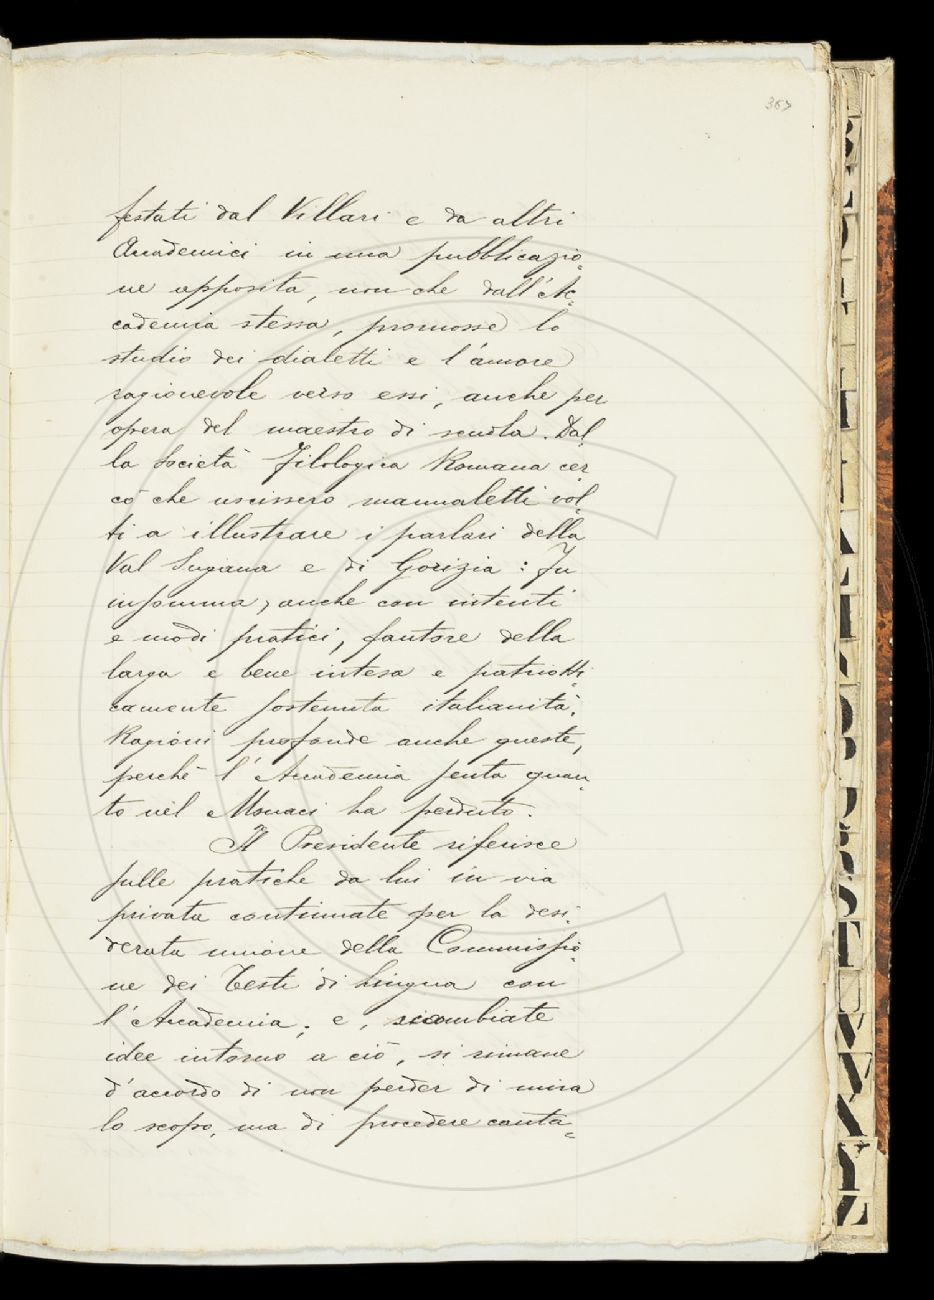 367
festati dal Villari e da altri
Accademici in una pubblicazio=
ne apposita, non che dall'Ac=
cademia stessa, promosse lo
studio dei dialetti e l'amore
ragionevole verso essi, anche per
opera del maestro di scuola. Dal=
la Società Filologica Romana cer
cò che uscissero manualetti vol=
ti a illustrare i parlari della
Val Sugana e di Gorizia: Fu
insomma, anche con intenti
e modi pratici, fautore della
larga e bene intesa e patriotti=
camente sostenuta italianità.
Ragioni profonde anche queste,
perchè l'Accademia senta quan=
to nel Monaci ha perduto.
Il Presidente riferisce
sulle pratiche da lui in via
privata continuate per la desi=
derata unione della Commissio=
ne dei Testi di Lingua con
l'Accademia; e, scambiate
idee intorno a ciò, si rimane
d'accordo di non perder di mira
lo scopo, ma di procedere cauta=
B
T
V
X
Y
Z